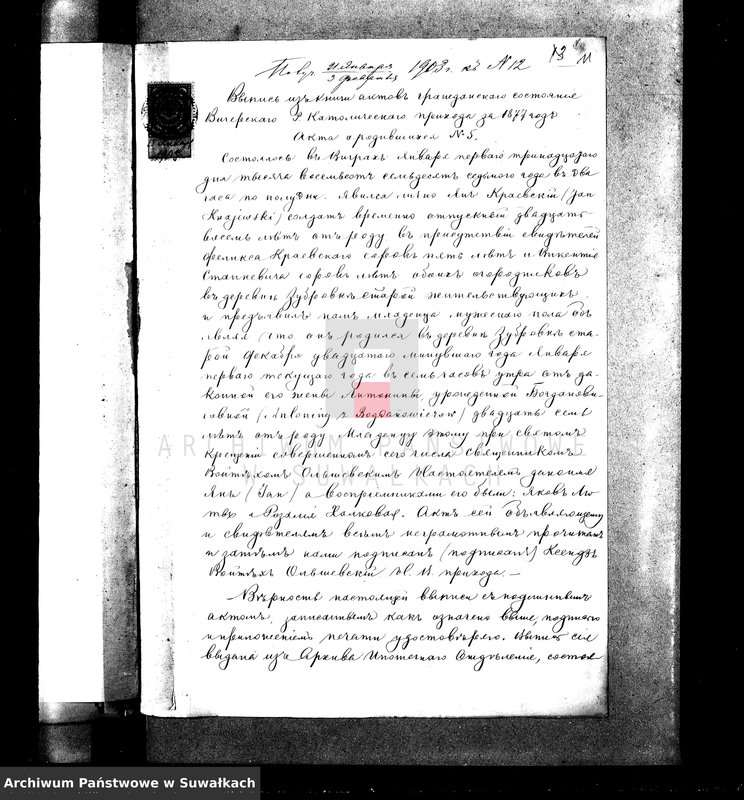 13 11
Повч. 21 Января / 3 Февраля 1903 г. къ № 12
Выпись изъ книги актовъ гражданскаго состоянія
Вигерскаго Р Католическаго прихода за 1877 годъ
Акта о родившихся № 5.
Состоялось въ Виграхъ Января перваго тринадцатаго
дня тысяча восемьсотъ семьдесятъ седьмаго года въ два
часа по полудни. Явился лично Янъ Краевскій (Jan
Krajewski) солдатъ временно отпускной двадцать
восемь лѣтъ отъ роду въ присутствіи свидѣтелей
Феликса Краевскаго сорокъ пять лѣтъ и Викентія
Станкевича сорокъ лѣтъ обоихъ огородниковъ
въ деревнѣ Зубровкѣ старой жительствующихъ
и предъявилъ намъ младенца мужескаго пола объ
являя что онъ родился въ деревнѣ Зубровкѣ ста-
рой Декабря двадцатаго минувшаго года Января
перваго текущаго года въ семь часовъ утра отъ за-
конной его жены Антонины, урожденной Богданови-
човной (Antoniny z Bogdanowiczów) двадцать семь
лѣтъ отъ роду Младенцу этому при святомъ
Крещеніи совершенномъ сего числа Священникомъ
Войтѣхомъ Ольшевскимъ Настоятелемъ дано имя
Янъ (Jan) а Воспріемниками его были: Яковъ
и Розалія Актъ сей объявляющему
и свидѣтелямъ всѣмъ неграмотнымъ прочитанъ
и затѣмъ нами подписанъ (подписалъ) Ксендзъ
Войтѣхъ Ольшевскій Н. В. прихода. —
Вѣрность настоящей выписи съ подлиннымъ
актомъ, записаннымъ какъ означено выше, подписью
и приложеніемъ печати удостовѣряю. Выпись сія
выдана изъ Архива Ипотечнаго Отдѣленія, состоя
ARCHIWUM PAŃSTWOWE
W SUWAŁKACH
Archiwum Państwowe w Suwałkach